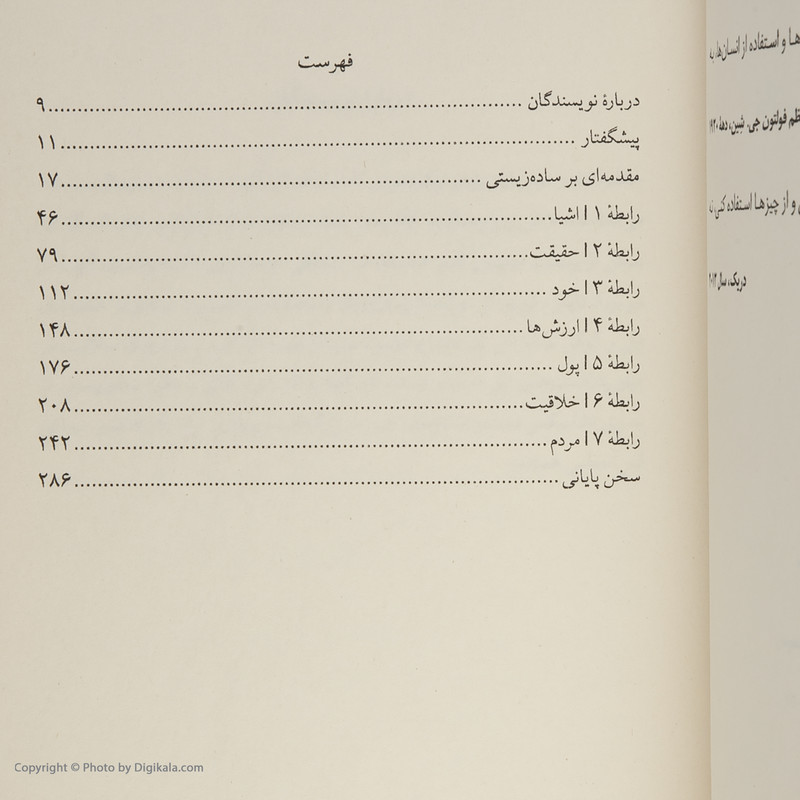 فهرست
دربارهٔ نویسندگان ........ ۹
پیشگفتار ........ ۱۱
مقدمه‌ای بر ساده‌زیستی ........ ۱۷
رابطهٔ ۱ | اشیا ........ ۴۶
رابطهٔ ۲ | حقیقت ........ ۷۹
رابطهٔ ۳ | خود ........ ۱۱۲
رابطهٔ ۴ | ارزش‌ها ........ ۱۴۸
رابطهٔ ۵ | پول ........ ۱۷۶
رابطهٔ ۶ | خلاقیت ........ ۲۰۸
رابطهٔ ۷ | مردم ........ ۲۴۲
سخن پایانی ........ ۲۸۶
و استفاده از انسان‌ها
فولتون جی. شین، دههٔ
و از چیزها استفاده
دریک، سال
Copyright © Photo by Digikala.com